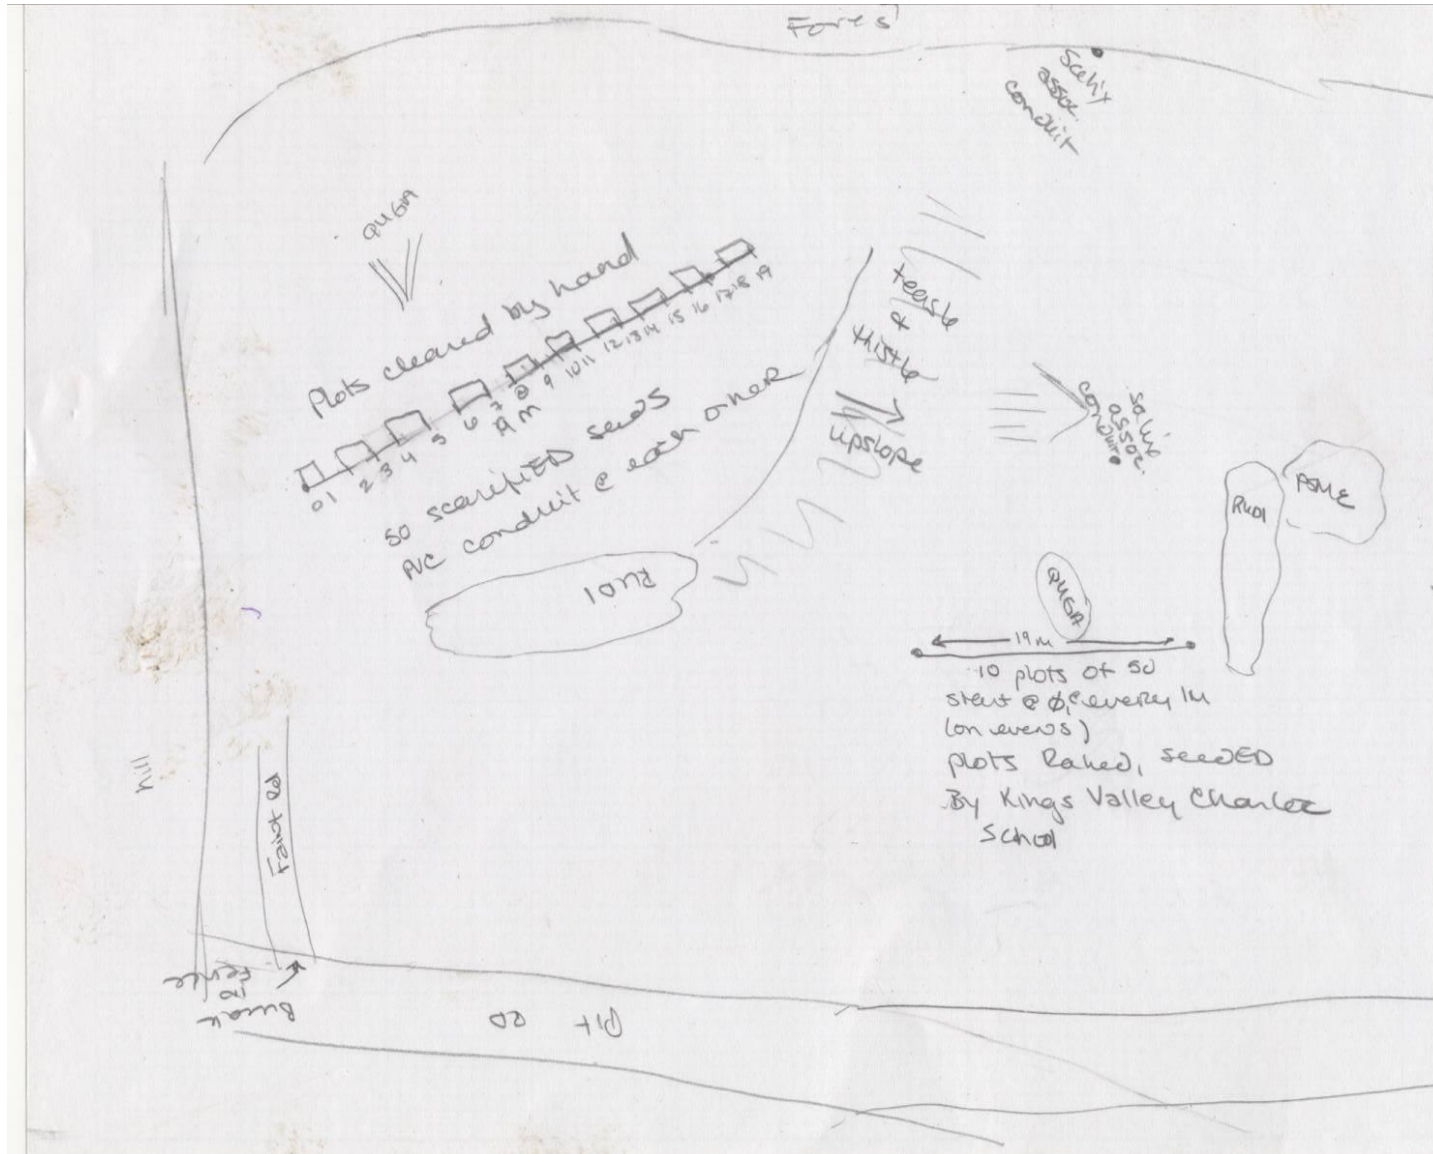 Forest
Salix
assoc.
conduit
QUGA
Plots cleared by hand
0 1 2 3 4 5 6 7 8 9 10 11 12 13 14 15 16 17 18 19
M
50 scarifiED seeds
PVC conduit @ each other
RUDI
teasle
&
thistle
upslope
salix
assoc.
conduit
RUDI
PSME
QUGA
19 m
10 plots of 50
start @ Ø, @ every 1M
(on evens)
plots Raked, seedED
By Kings Valley Charter
School
hill
Faint Rd
Break
in
Fence
Plt RD